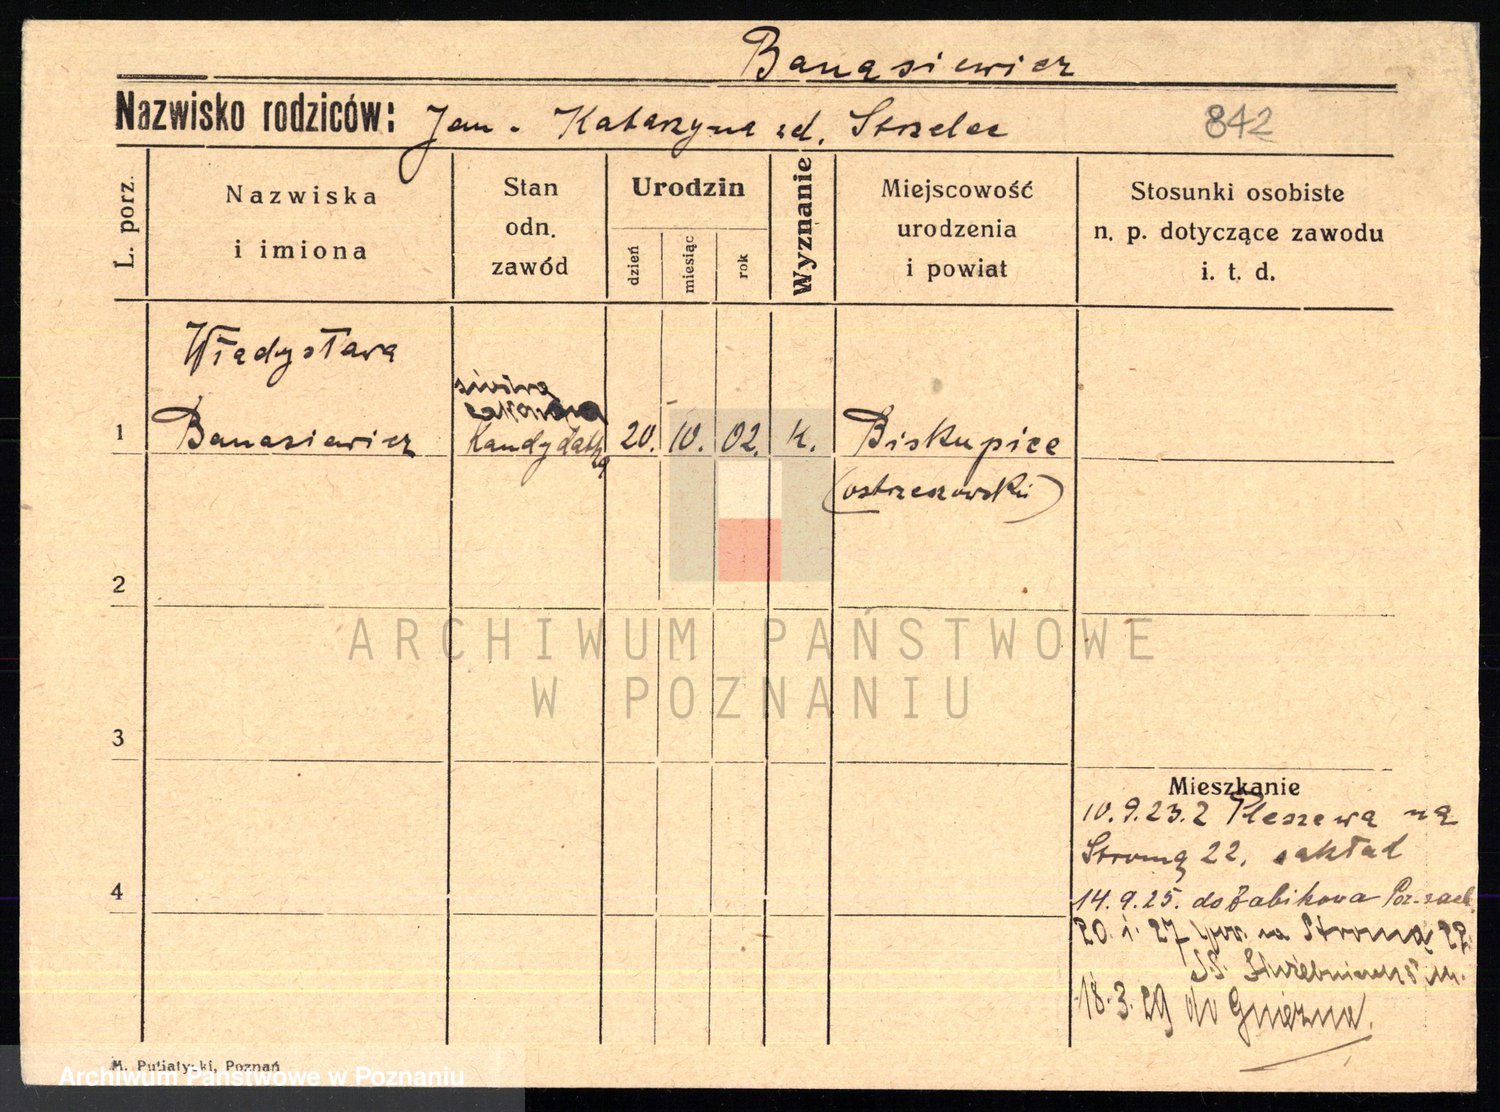 Banasiewicz
Nazwisko rodziców: Jan - Katarzyna zd. Strzelec
842
L. porz.
Nazwiska
i imiona
Stan
odn.
zawód
Urodzin
dzień
miesiąc
rok
Wyznanie
Miejscowość
urodzenia
i powiat
Stosunki osobiste
n. p. dotyczące zawodu
i. t. d.
Władysława
siostra
zakonna
1 Banasiewicz Kandydatka 20. 10. 02. k. Biskupice
(ostrzeszowski)
2
ARCHIWUM PAŃSTWOWE
W POZNANIU
3
Mieszkanie
10.9.23. z Pleszewa na
Stromą 22. zakład
4
14.9.25. do Żabikowa Poz. zach.
20. 1. 27 na Stromą 22.
S.S. Służebniczek
18.3.29 do Gniezna.
M. Putiatycki, Poznań
Archiwum Państwowe w Poznaniu